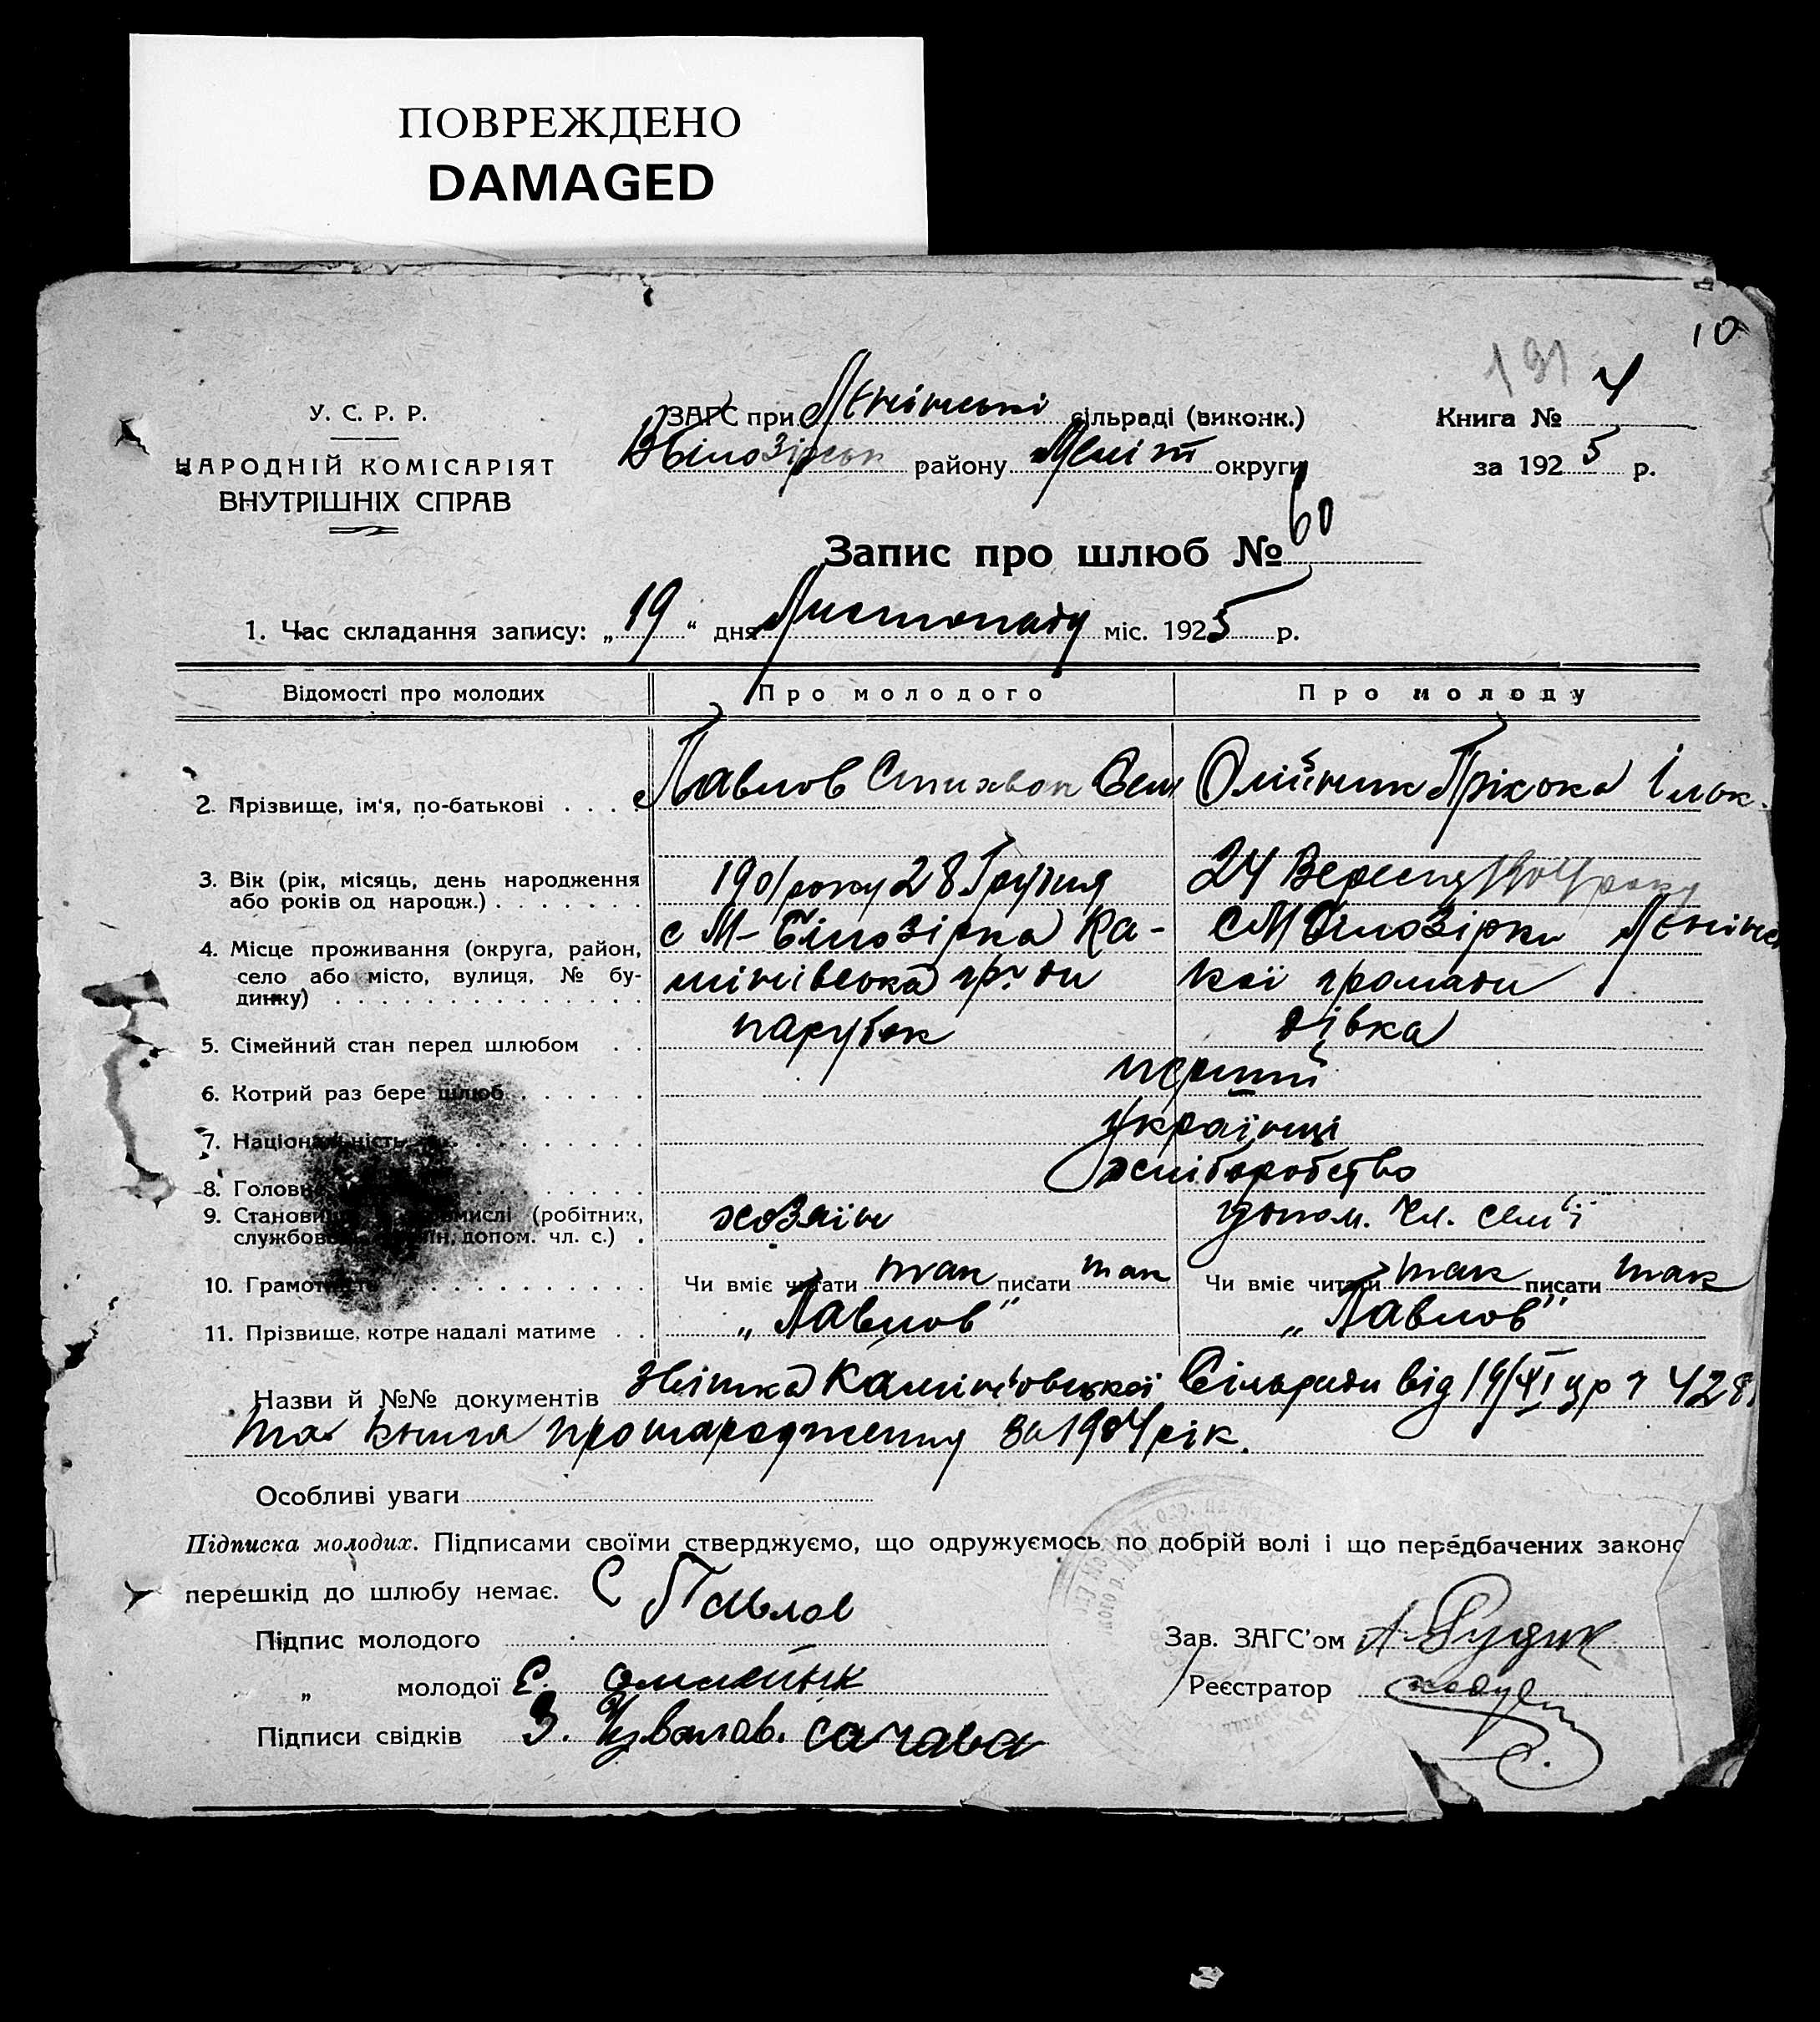 ПОВРЕЖДЕНО
DAMAGED
10
191
У. С. Р. Р.
НАРОДНІЙ КОМІСАРІЯТ
ВНУТРІШНІХ СПРАВ
ЗАГС при Ленінські сільраді (виконк.)
Вбілозірськ району Меліт округи
Книга № 4
за 1925 р.
Запис про шлюб № 60
1. Час складання запису: „19“ дня Листопаду міс. 1925 р.
Відомості про молодих Про молодого Про молоду
2. Прізвище, ім'я, по-батькові . . . . Павлов Стихван Сем Олійник Прікока Ілок.
3. Вік (рік, місяць, день народження або років од народж.) . . . . . . . 1901 року 28 Грудня 24 Вересня 1904 року
4. Місце проживання (округа, район, село або місто, вулиця, № будинку) . . . . . . . . . . . . . .
с М-Білозірка Ка-
лінівська гр-ди
с М Білозірки Ленінс
кої громади
5. Сімейний стан перед шлюбом . . парубок дівка
6. Котрий раз бере шлюб . . . . . . перший
7. Національність . . . . . . . . українці
8. Головн . . . . . . . хліборобство
9. Станови мислі (робітник, службов допом. чл. с.) . хозяїн допом. чл. сем'ї
10. Грамотність . . . . . . . . . Чи вміє читати так писати так Чи вміє читати так писати так
11. Прізвище, котре надалі матиме . . „Павлов” „Павлов”
Назви й №№ документів звітка Калінівецької Сільради від 19/XI ц р 428
та книга про народження за 1904 рік.
Особливі уваги
Підписка молодих. Підписами своїми стверджуємо, що одружуємось по добрій волі і що передбачених законо
перешкід до шлюбу немає.
Підпис молодого С Павлов
„ молодої Є. олилейник
Підписи свідків З.
Зав. ЗАГС'ом А Рудик
Реєстратор